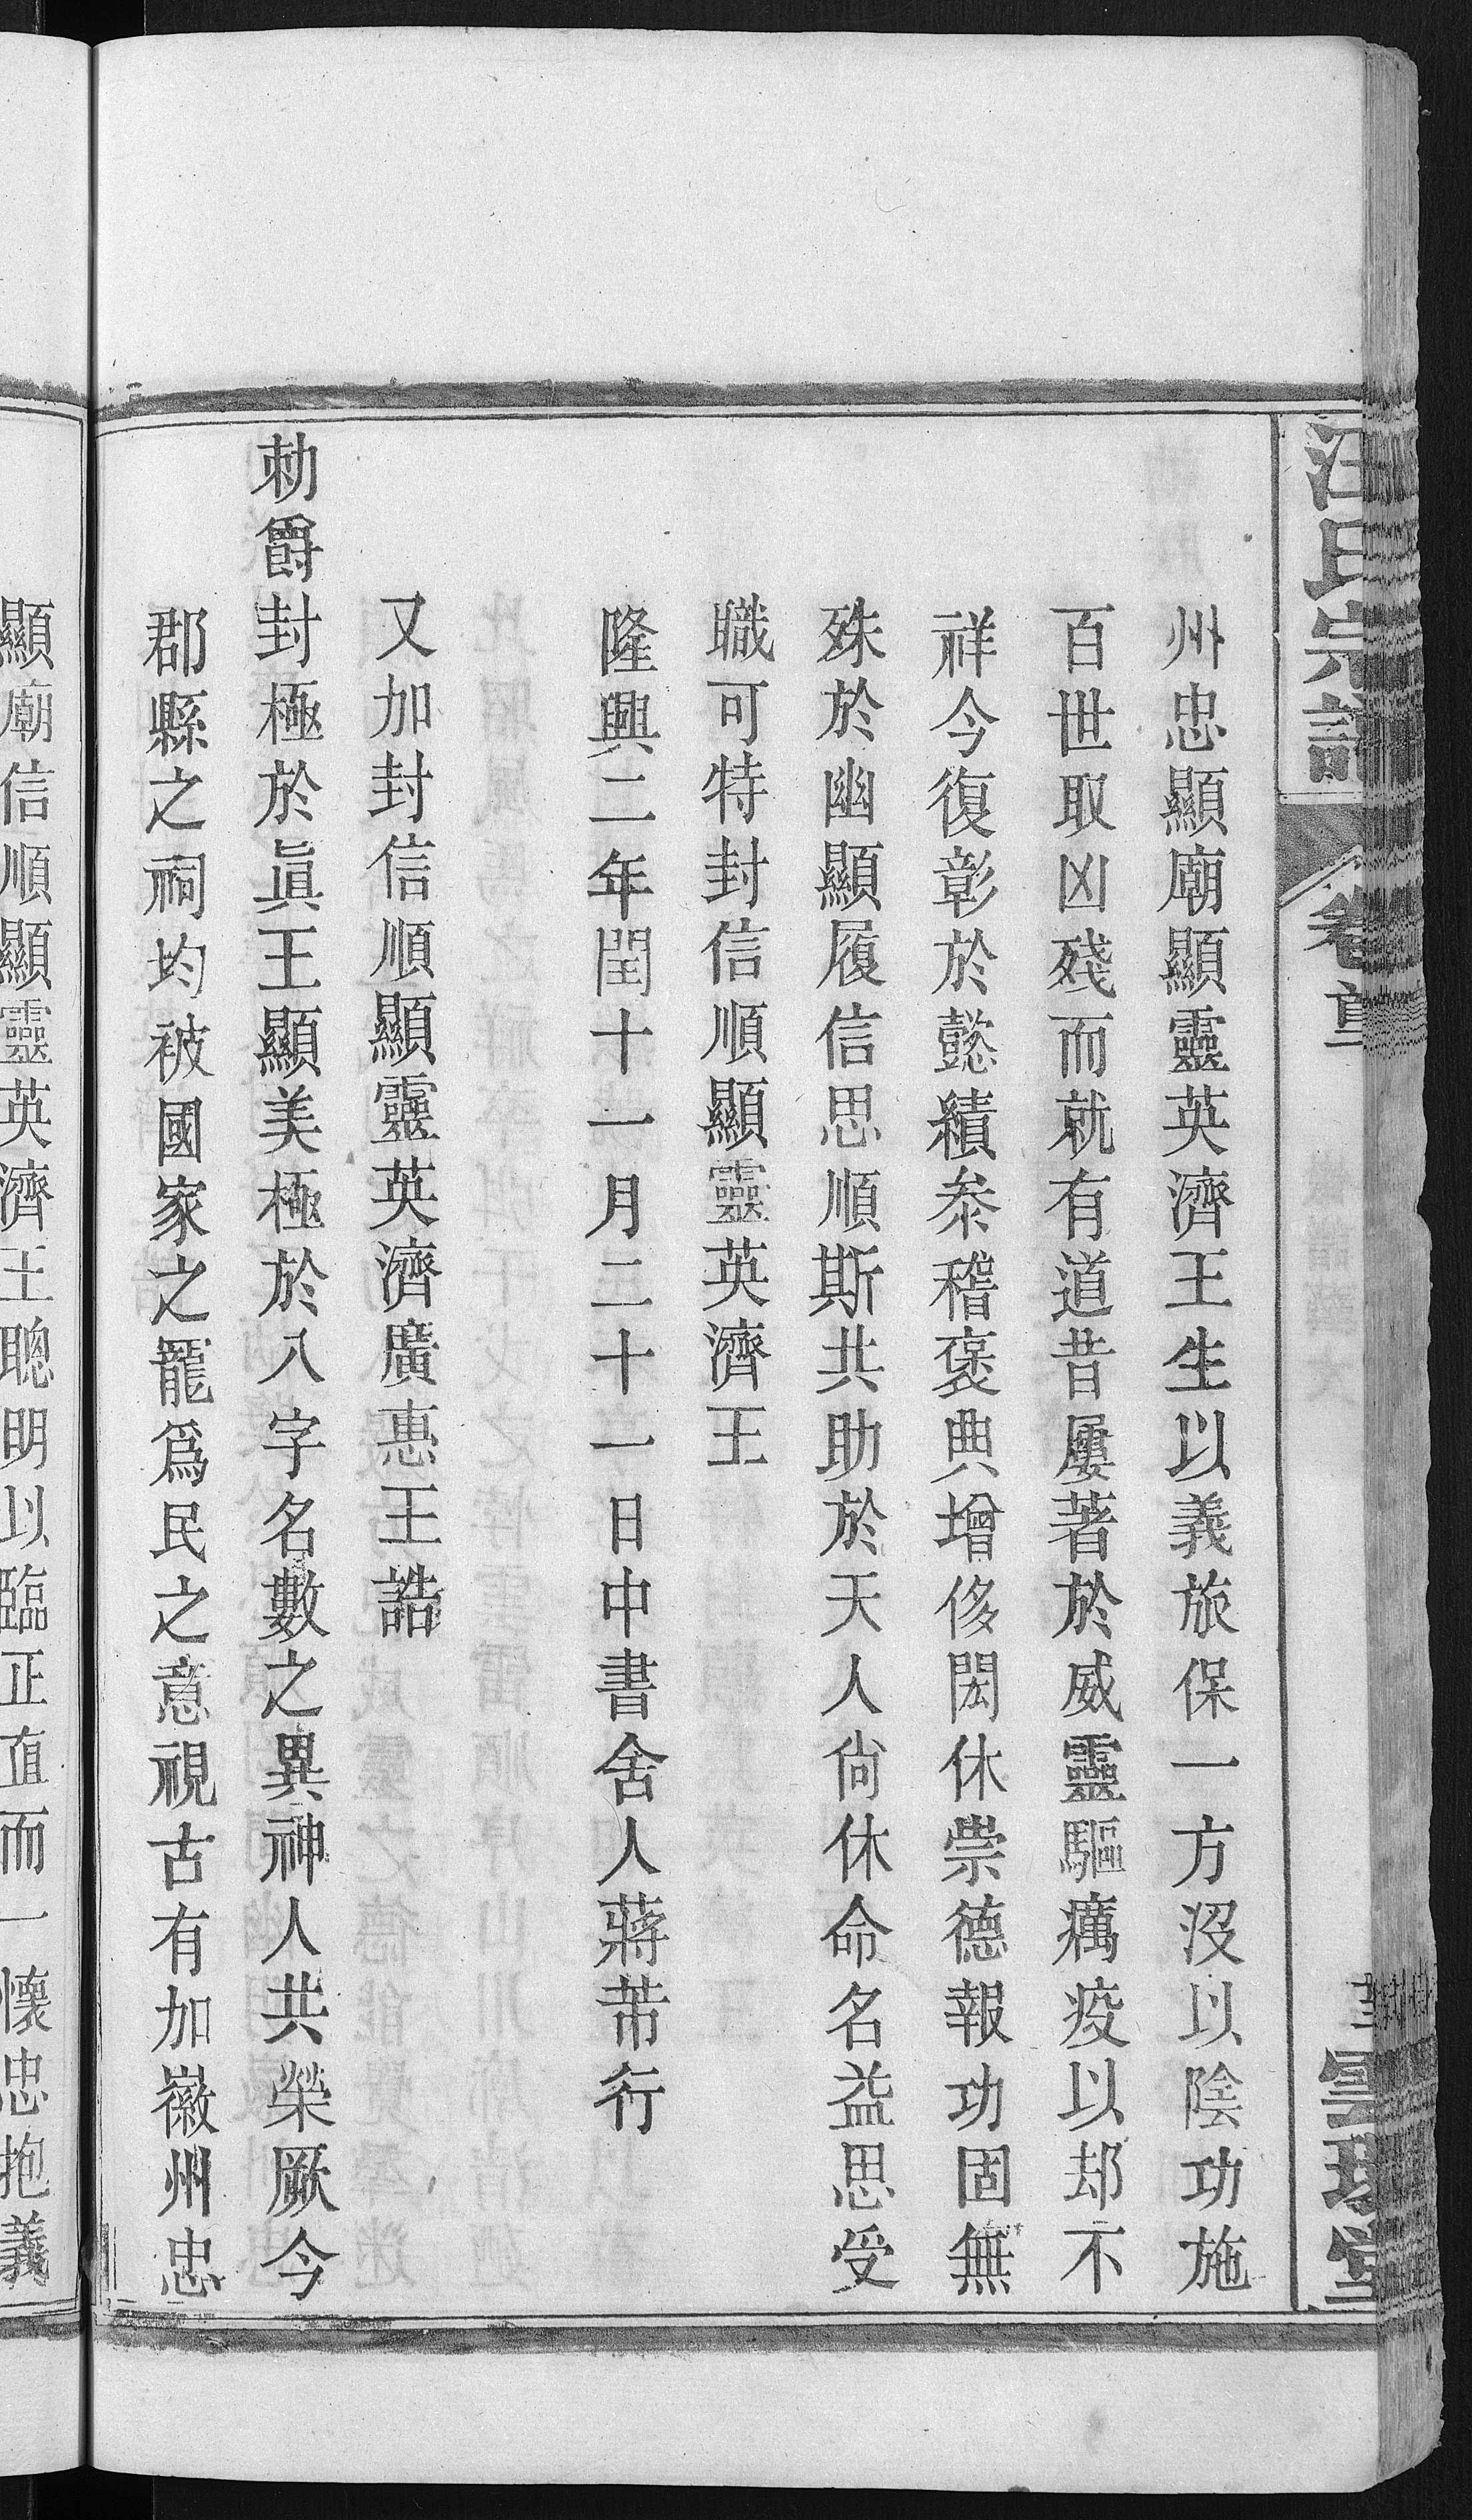 汪氏宗譜
卷首
州忠顯廟顯靈英濟王生以義旅保一方沒以陰功施
百世取凶殘而就有道昔屢著於威靈驅癘疫以却不
祥今復彰於懿績叅稽褒典增侈閎休崇德報功固無
殊於幽顯履信思順斯共助於天人尙休命名益思受
職可特封信順顯靈英濟王
隆興二年閏十一月二十一日中書舍人蔣芾行
又加封信順顯靈英濟廣惠王誥
勅爵封極於眞王顯美極於八字名數之異神人共榮厥今
郡縣之祠均被國家之寵爲民之意視古有加徽州忠
顯廟信順顯靈英濟王聰明以臨正直而一懷忠抱義